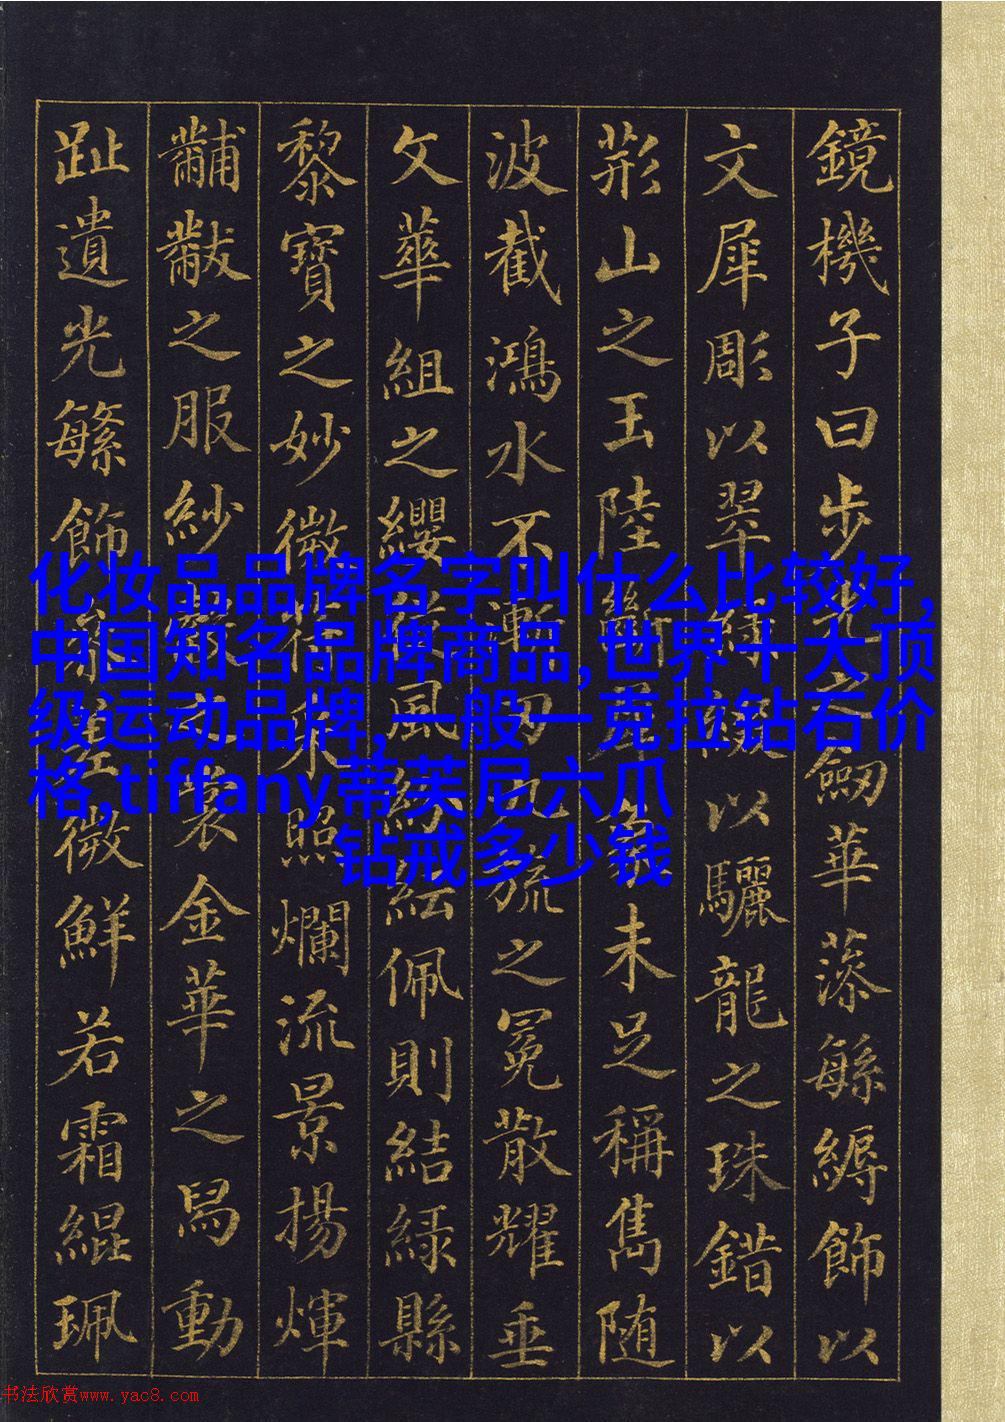 鏡機子曰步光之劒華藻緐縟飾以
文犀彫以翠綠綴以驪龍之珠錯以
荆山之玉陸斷犀象未足稱雋随
波截鴻水不漸刃九旒之冕散耀垂
文華組之纓從風紛紜佩則結緑縣
黎寶之妙微符采照爛流景揚煇
黼黻之服紗縠之裳金華之舄動
趾遺光繁飾參差微鮮若霜緄珮
化妆品品牌名字叫什么比较好,
中国知名品牌商品,世界十大顶
级运动品牌,一般一克拉钻石价
格,tiffany蒂芙尼六爪
钻戒多少钱
书法欣赏www.yac8.com